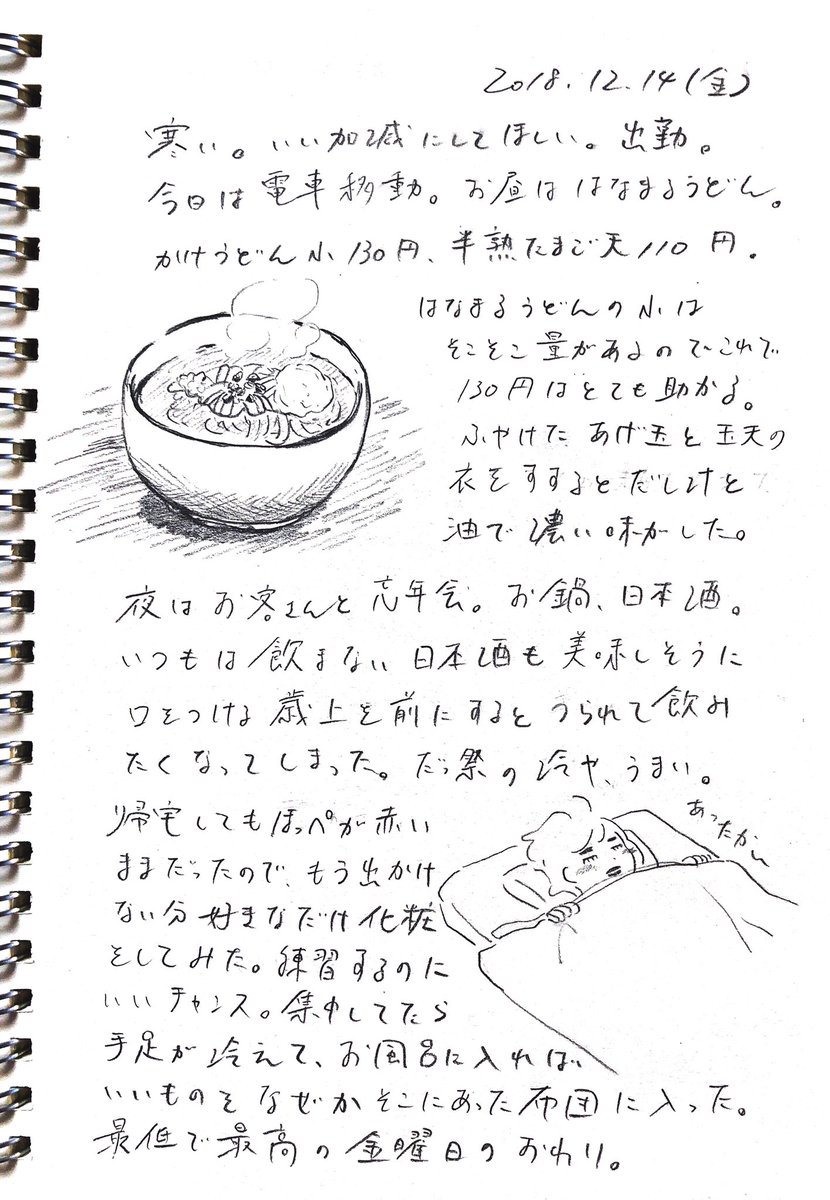 2018.12.14(金)
寒い。いい加減にしてほしい。出勤。
今日は電車移動。お昼ははなまるうどん。
かけうどん小130円、半熟たまご天110円。
はなまるうどんの小は
そこそこ量があるのでこれで
130円はとても助かる。
ふやけたあげ玉と玉天の
衣をすするとだし汁と
油で濃い味がした。
夜はお客さんと忘年会。お鍋、日本酒。
いつもは飲まない日本酒も美味しそうに
口をつける歳上を前にするとつられて飲み
たくなってしまった。だっ祭の冷や、うまい。
帰宅してもほっぺが赤い
ままだったので、もう出かけ
ない分好きなだけ化粧
をしてみた。練習するのに
いいチャンス。集中してたら
手足が冷えて、お風呂に入れば
いいものをなぜかそこにあった布団に入った。
最低で最高の金曜日のおわり。
あったかい